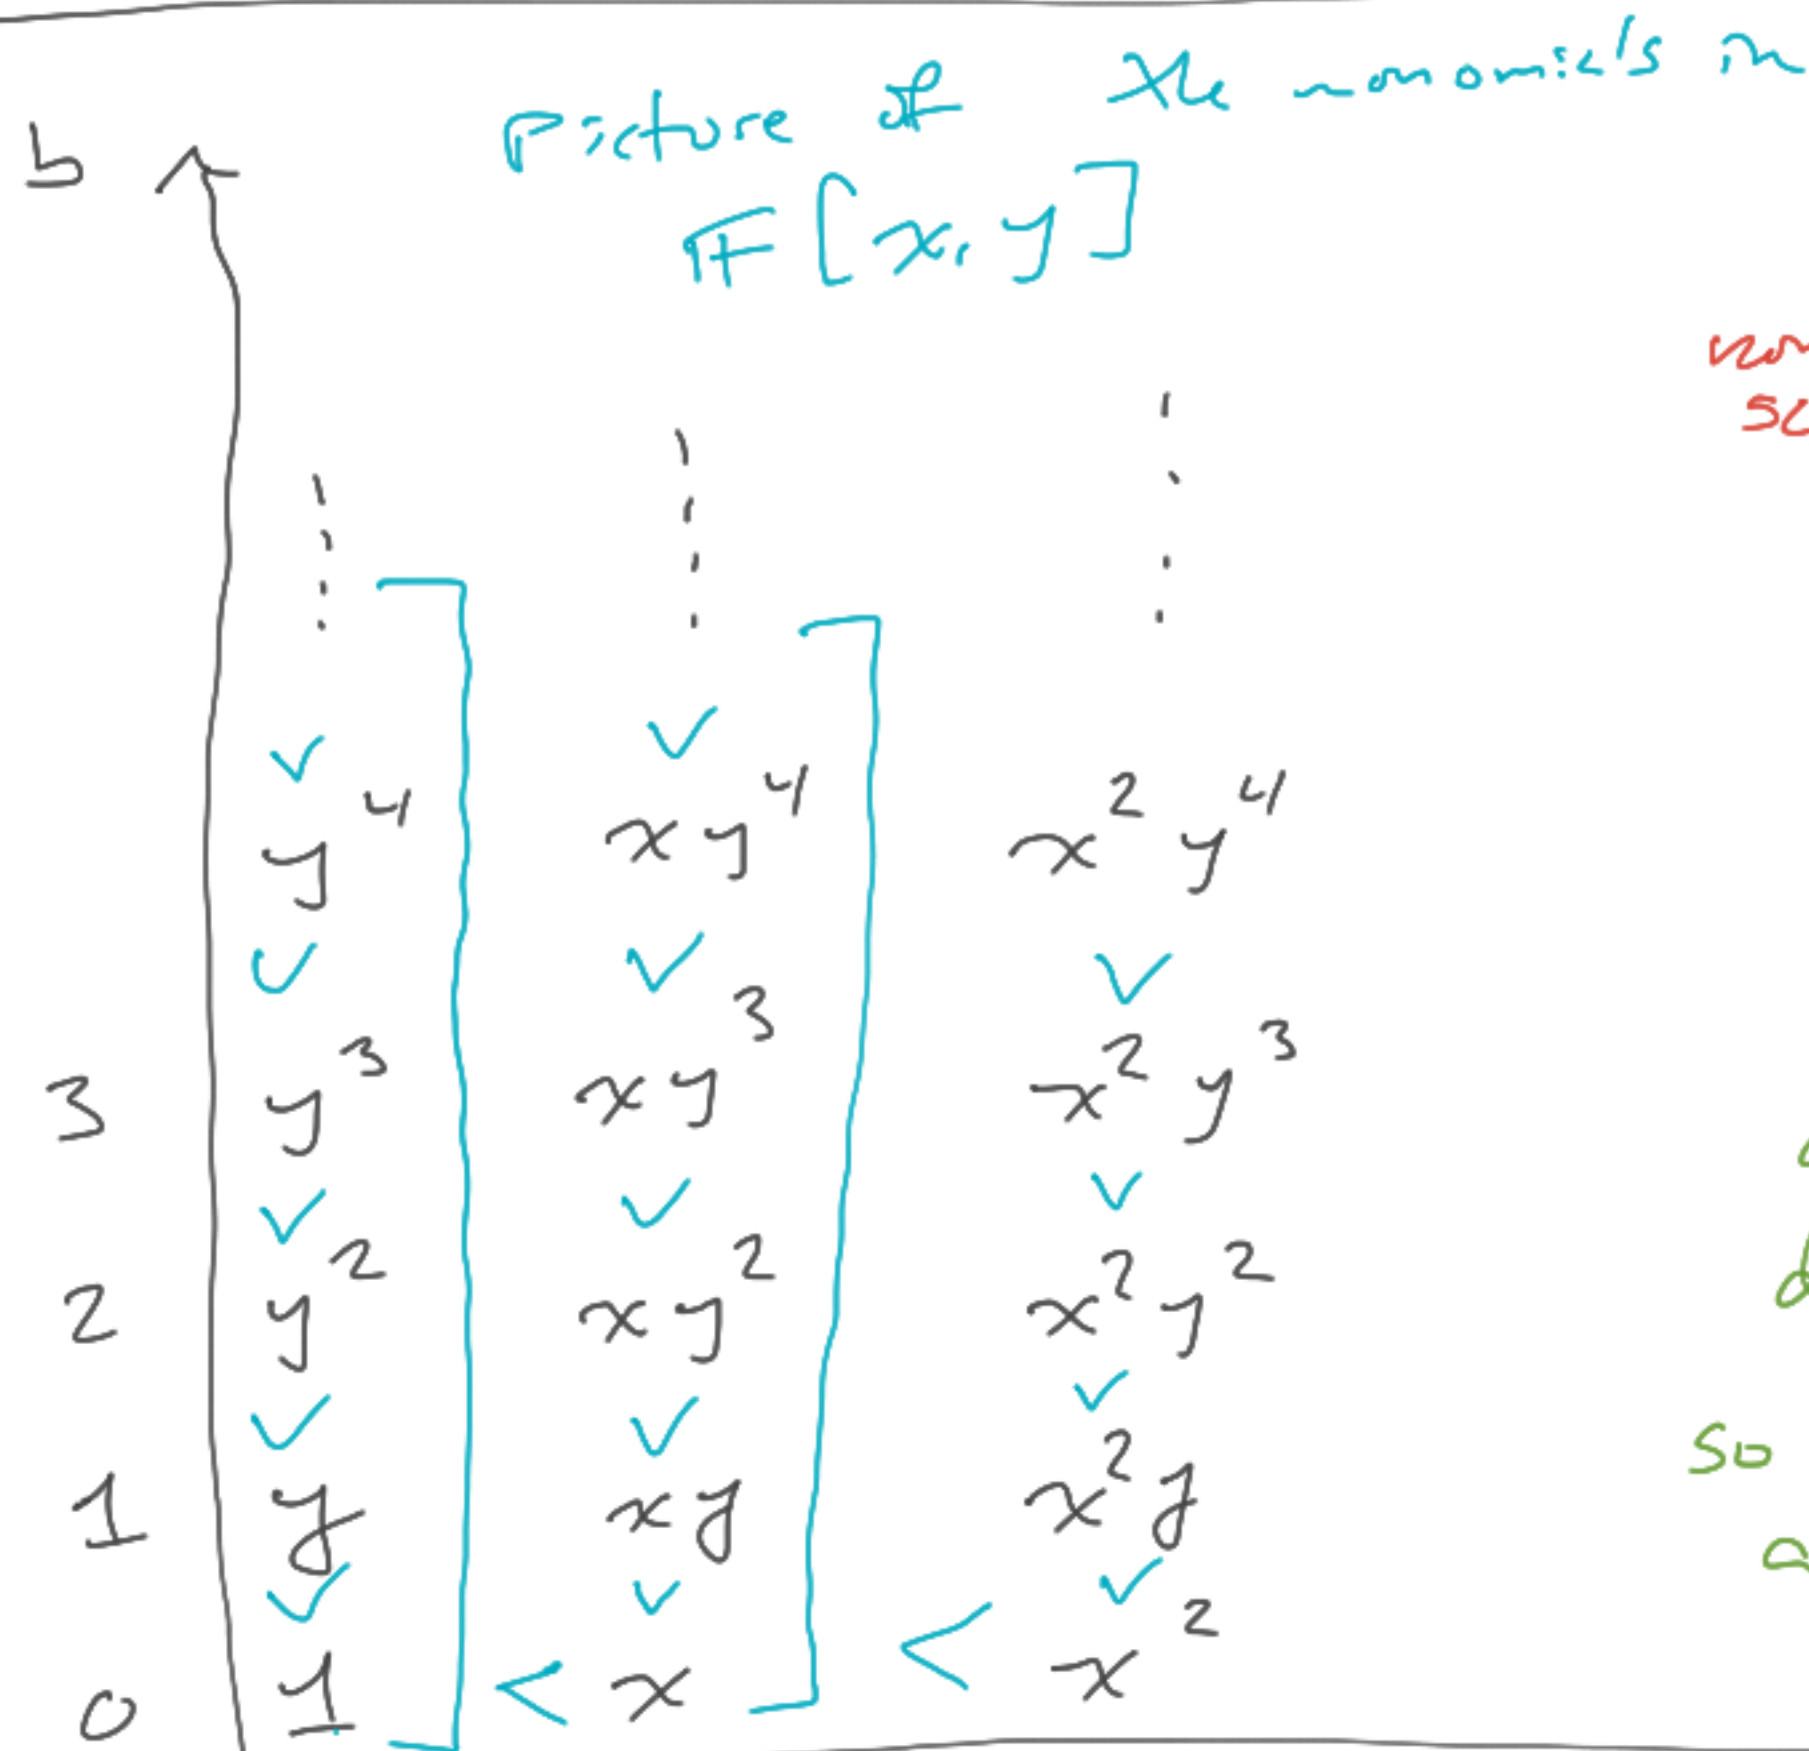 Picture of the monomials in
b
𝔽[x, y]
∨ ∨
y⁴ xy⁴ x²y⁴
∨ ∨ ∨
3 y³ xy³ x²y³
∨ ∨ ∨
2 y² xy² x²y²
∨ ∨ ∨
so
1 y xy x²y
∨ ∨ ∨
0 1 < x < x²